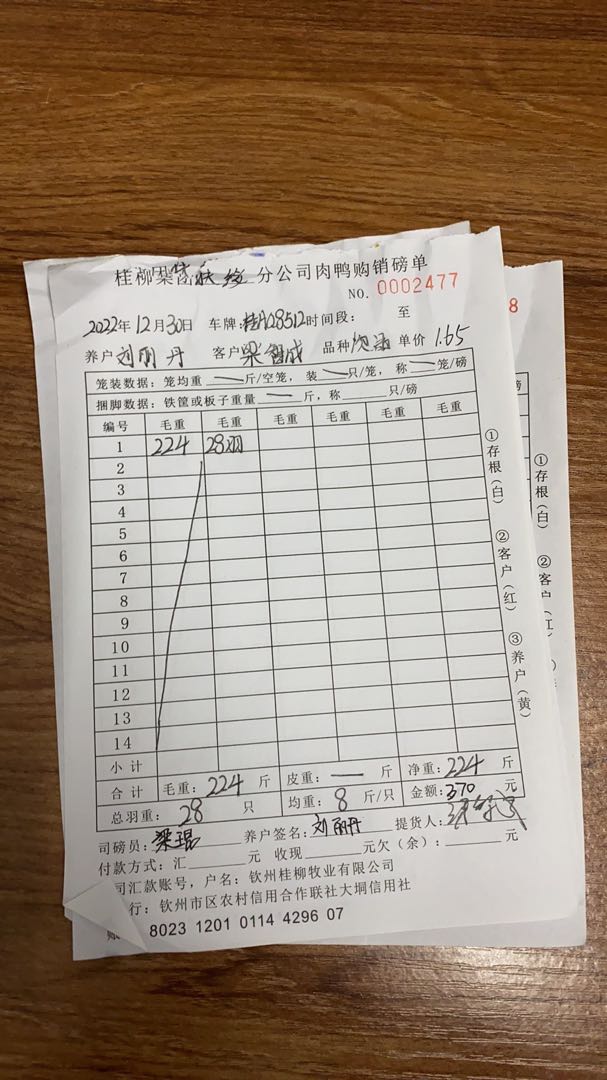 桂柳集 分公司肉鸭购销磅单
NO. 0002477
2022年12月30日 车牌:桂 28512 时间段: 至
养户 刘丽丹 客户 梁 成 品种 单价 1.65
笼装数据:笼均重 — 斤/空笼,装 — 只/笼,称 — 笼/磅
捆脚数据:铁筐或板子重量 — 斤,称 只/磅
编号 毛重 毛重 毛重 毛重 毛重 毛重
1 224 28羽
2
3
4
5
6
7
8
9
10
11
12
13
14
小计
合计 毛重:224 斤 皮重:— 斤 净重:224 斤
总羽重:28 只 均重:8 斤/只 金额:370 元
司磅员:梁琨 养户签名:刘丽丹 提货人:
付款方式:汇 元 收现 元欠(余): 元
司汇款账号,户名:钦州桂柳牧业有限公司
行:钦州市区农村信用合作联社大垌信用社
账 8023 1201 0114 4296 07
①存根(白) ②客户(红) ③养户(黄)
8
磅
①存根(白) ②客户(红